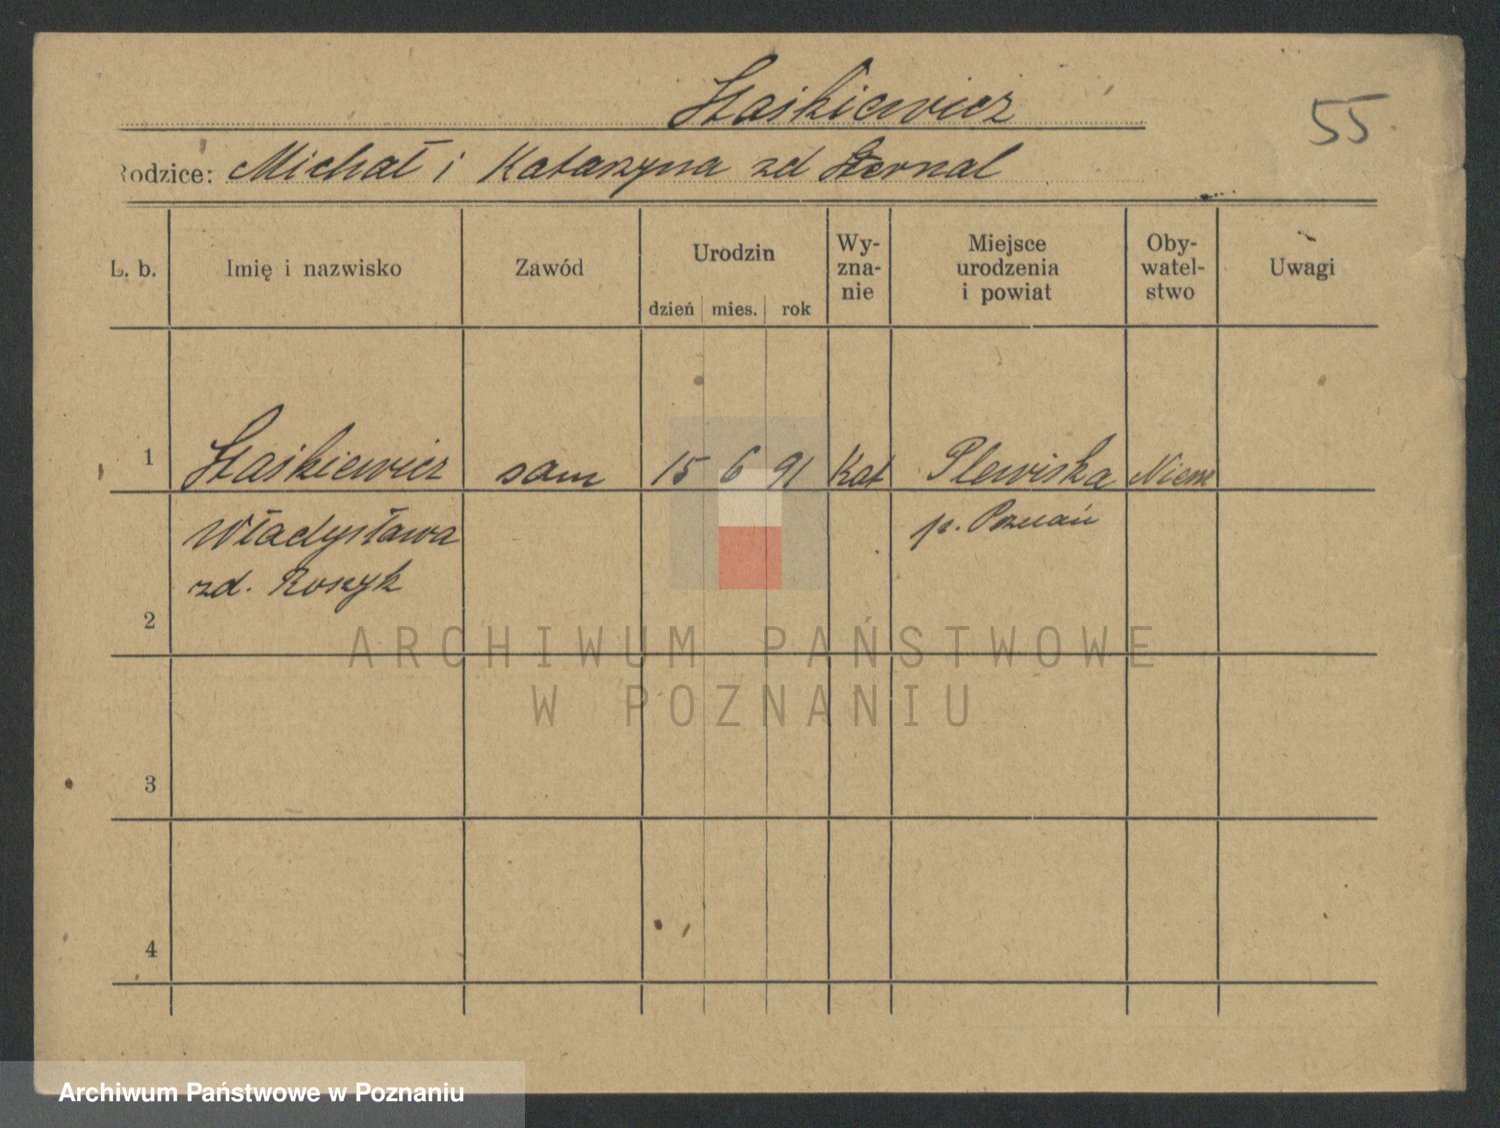 Staśkiewicz
55
Rodzice: Michał i Katarzyna zd Sternal
L. b.
Imię i nazwisko
Zawód
Urodzin
dzień mies. rok
Wy-
zna-
nie
Miejsce
urodzenia
i powiat
Oby-
watel-
stwo
Uwagi
1 Staśkiewicz sam 15 6 91 Kat Plewiska Niem
Władysława p. Poznań
zd. Roszyk
2
ARCHIWUM PAŃSTWOWE
W POZNANIU
3
4
Archiwum Państwowe w Poznaniu